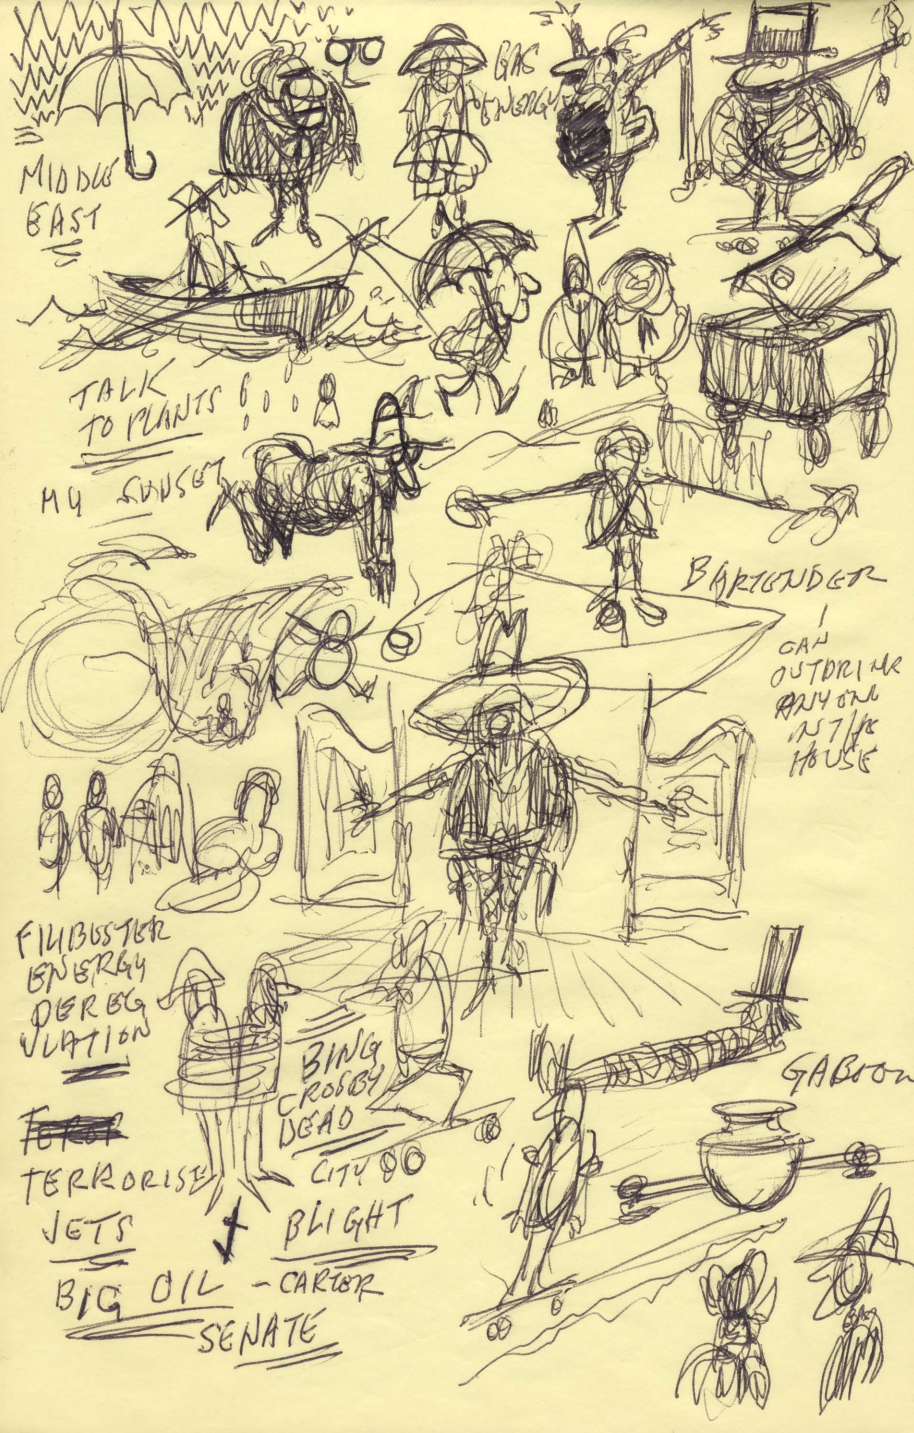 GAS
ENERGY
MIDDLE
EAST
TALK
TO PLANTS
MY SUNSET
BARTENDER
I
CAN
OUTDRINK
ANYONE
IN THE
HOUSE
FILIBUSTER
ENERGY
DEREG
ULATION
BING
CROSBY
DEAD
GABOON
TERRORISE
JETS
CITY
BLIGHT
BIG OIL - CARTER
SENATE